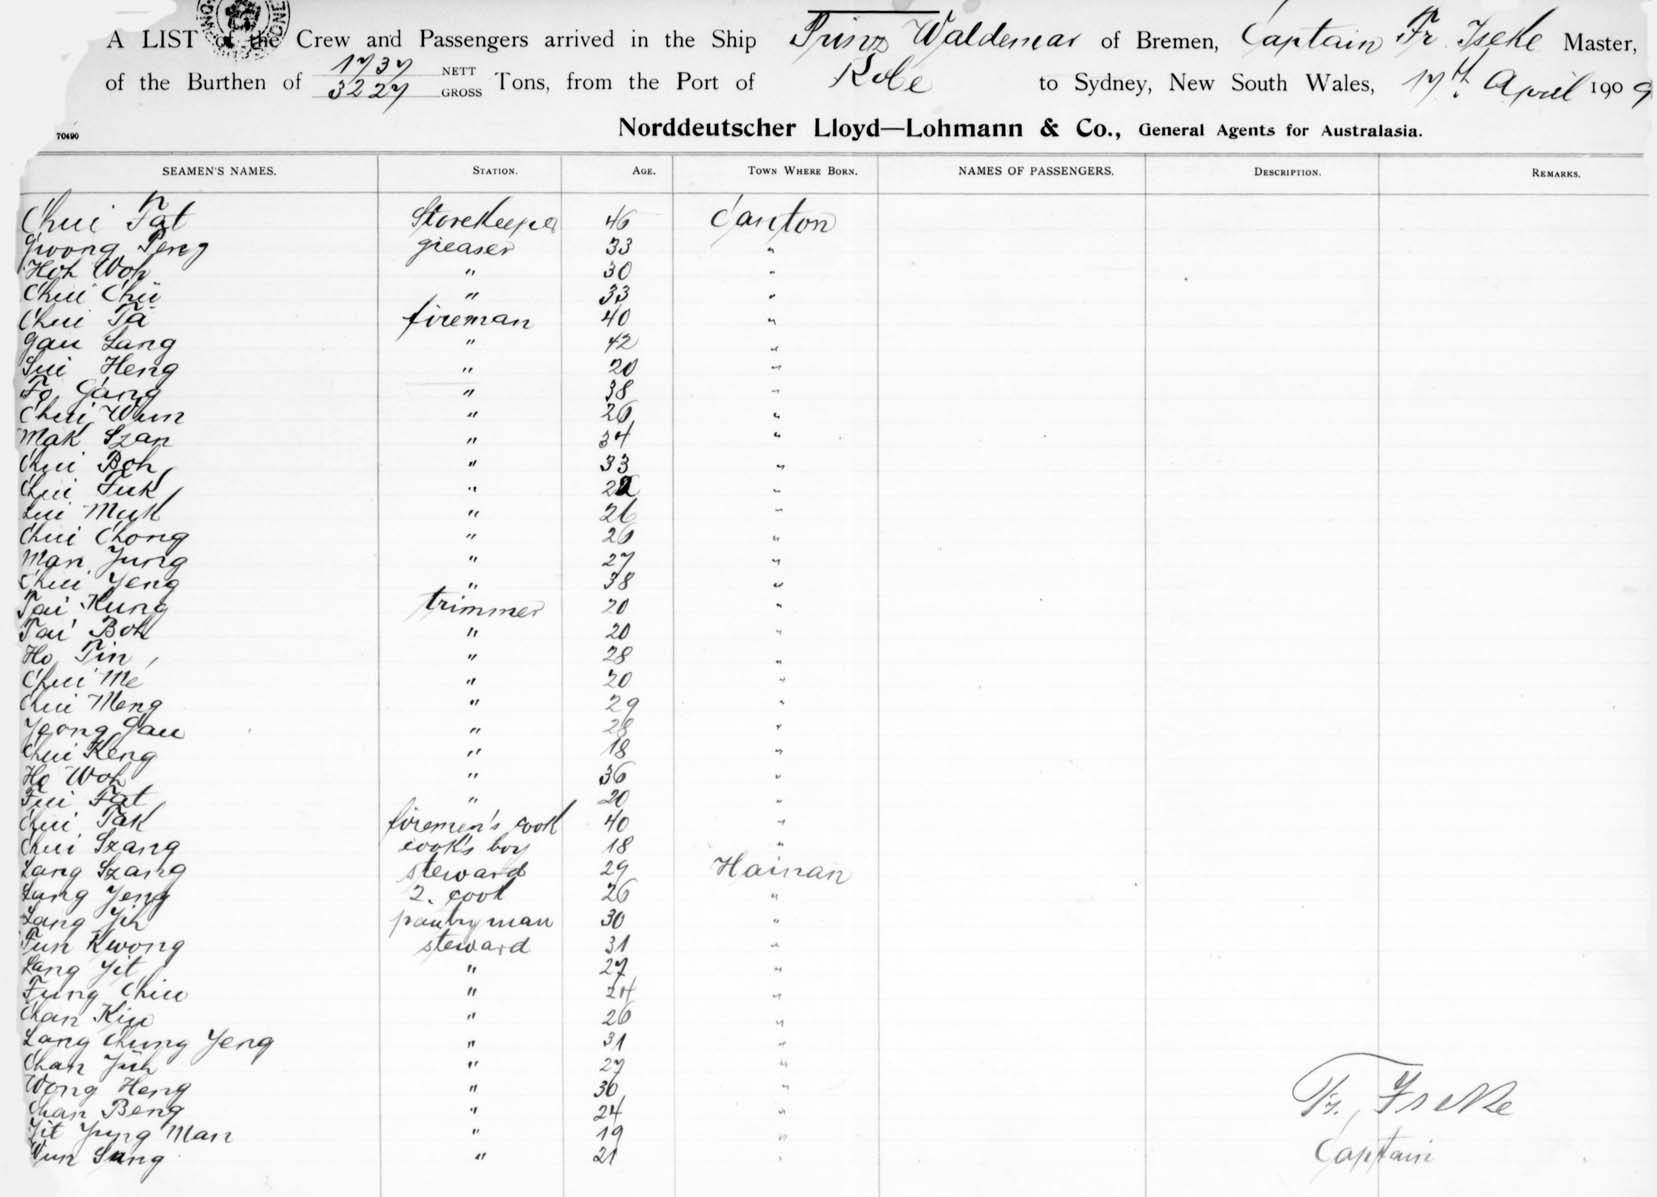 A LIST of the Crew and Passengers arrived in the Ship Prinz Waldemar of Bremen, Captain Fr. Iseke Master,
of the Burthen of 1737 NETT 3227 GROSS Tons, from the Port of Kobe to Sydney, New South Wales, 17th April 1909
70490 Norddeutscher Lloyd—Lohmann & Co., General Agents for Australasia.
SEAMEN'S NAMES. STATION. AGE. TOWN WHERE BORN. NAMES OF PASSENGERS. DESCRIPTION. REMARKS.
Chui Fat Storekeeper 46 Canton
Gwong Peng greaser 33 "
Hoh Woh " 30 "
Chui Chü " 33 "
Chui Ta fireman 40 "
Gau Lang " 42 "
Sui Heng " 20 "
Fo Gang " 38 "
Chui Wun " 26 "
Mak Szan " 34 "
Chui Boh " 33 "
Chui Fuk " "
Lui Muk " 26 "
Chui Chong " 26 "
Man Jung " 27 "
Chui Yeng " 38 "
Tai Kung trimmer 20 "
Tai Boh " 20 "
Ho Tin " 28 "
Chui Me " 20 "
Chui Meng " 29 "
Yeong Gau " 28 "
Chui Keng " 18 "
Ho Woh " 36 "
Fui Fat " 20 "
Chui Tak firemen's cook 40 "
Chui Szang cook's boy 18 "
Lang Szang steward 29 Hainan
Lung Yeng 2. cook 26 "
Lang pantryman 30 "
Fun Kwong steward 31 "
Lang Yit " 27 "
Fung Chiu " 24 "
Chan Kiu " 26 "
Lang Chung Yeng " 31 "
Chan " 27 "
Wong Heng " 30 "
Chan Beng " 24 "
Yit Yung Man " 19 "
Wun Sang " 21 "
Fr. Iseke
Captain